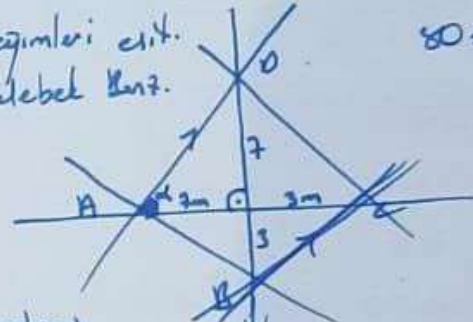 eğimleri eşit.
elebek Benz.
80.
D
7
A α 7m 3m C
3
B